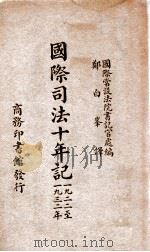 國際常設法院書記官處編
鄭白峯譯
國際司法十年記
一九二二至
一九三二年
商務印書館發行
www.mtoou.info